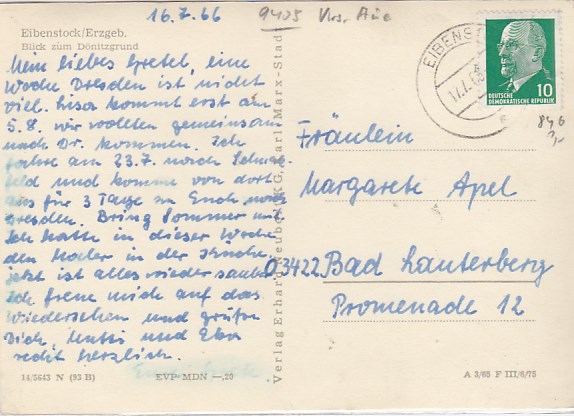 16.7.66
9405 Krs. Aue
Eibenstock/Erzgeb.
Blick zum Dönitzgrund
Mein liebes Gretel, eine
Woche Dresden ist nicht
viel. Lisa kommt erst am
5.8. wir wollten gemeinsam
nach Dr. kommen. Ich
fahre am 23.7. nach
feld und komme von dort
aus für 3 Tage zu Euch nach
Dresden. Bring Sommer mit
Ich hatte in dieser Woche
den Maler in der Küche,
jetzt ist alles wieder sauber
Ich freue mich auf das
Wiedersehen und grüße
Dich, Mutti und Eka
recht herzlich.
14/5643 N (93 B) EVP MDN —,20
Verlag Erhard Neubert KG, Karl-Marx-Stadt
EIBENSTOCK
17.7.66
10
DEUTSCHE
DEMOKRATISCHE REPUBLIK
846
Fräulein
Margarete Apel
D 3422 Bad Lauterberg
Promenade 12
A 3/65 F III/6/75